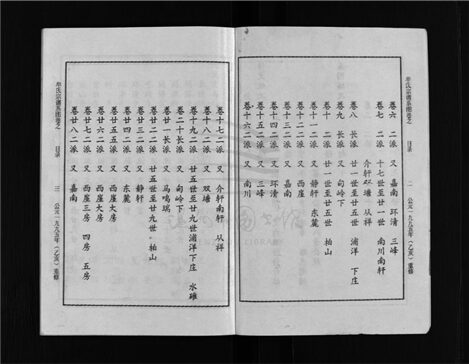 牟氏宗谱系图卷之 目录 二 公元一九九五年(乙亥)重修
卷六 二派 又 嘉南 环清 三峰
卷七 二派 十七世至廿一世 南川南轩
介轩双塘 从祥
卷八 长派 廿一世至廿五世 浦洋 下庄
卷九 长派 又 句岭下
卷十 二派 廿一世至廿五世 柏山
卷十一 二派 又 静轩 东麓
卷十二 二派 又 嘉南
卷十三 二派 又 环清
卷十四 二派 又 三峰
卷十五 二派 又
卷十六 二派 又 南川
卷十七 二派 又 介轩南轩 从祥
卷十八 二派 又 双塘
卷十九 二派 廿五世至廿九世 浦洋下庄 水碓
卷二十 长派 又 句岭下
卷廿一 长派 又 马鸣瑞
卷廿二 二派 廿五世至廿九世 柏山
卷廿三 二派 又 静轩
卷廿四 二派 又 东麓
卷廿五 二派 又 西崖大房
卷廿六 二派 又 西崖大房
卷廿七 二派 又 西崖三房 四房 五房
卷廿八 二派 又 嘉南
牟氏宗谱系图卷之 目录 三 公元一九九五年(乙亥)重修